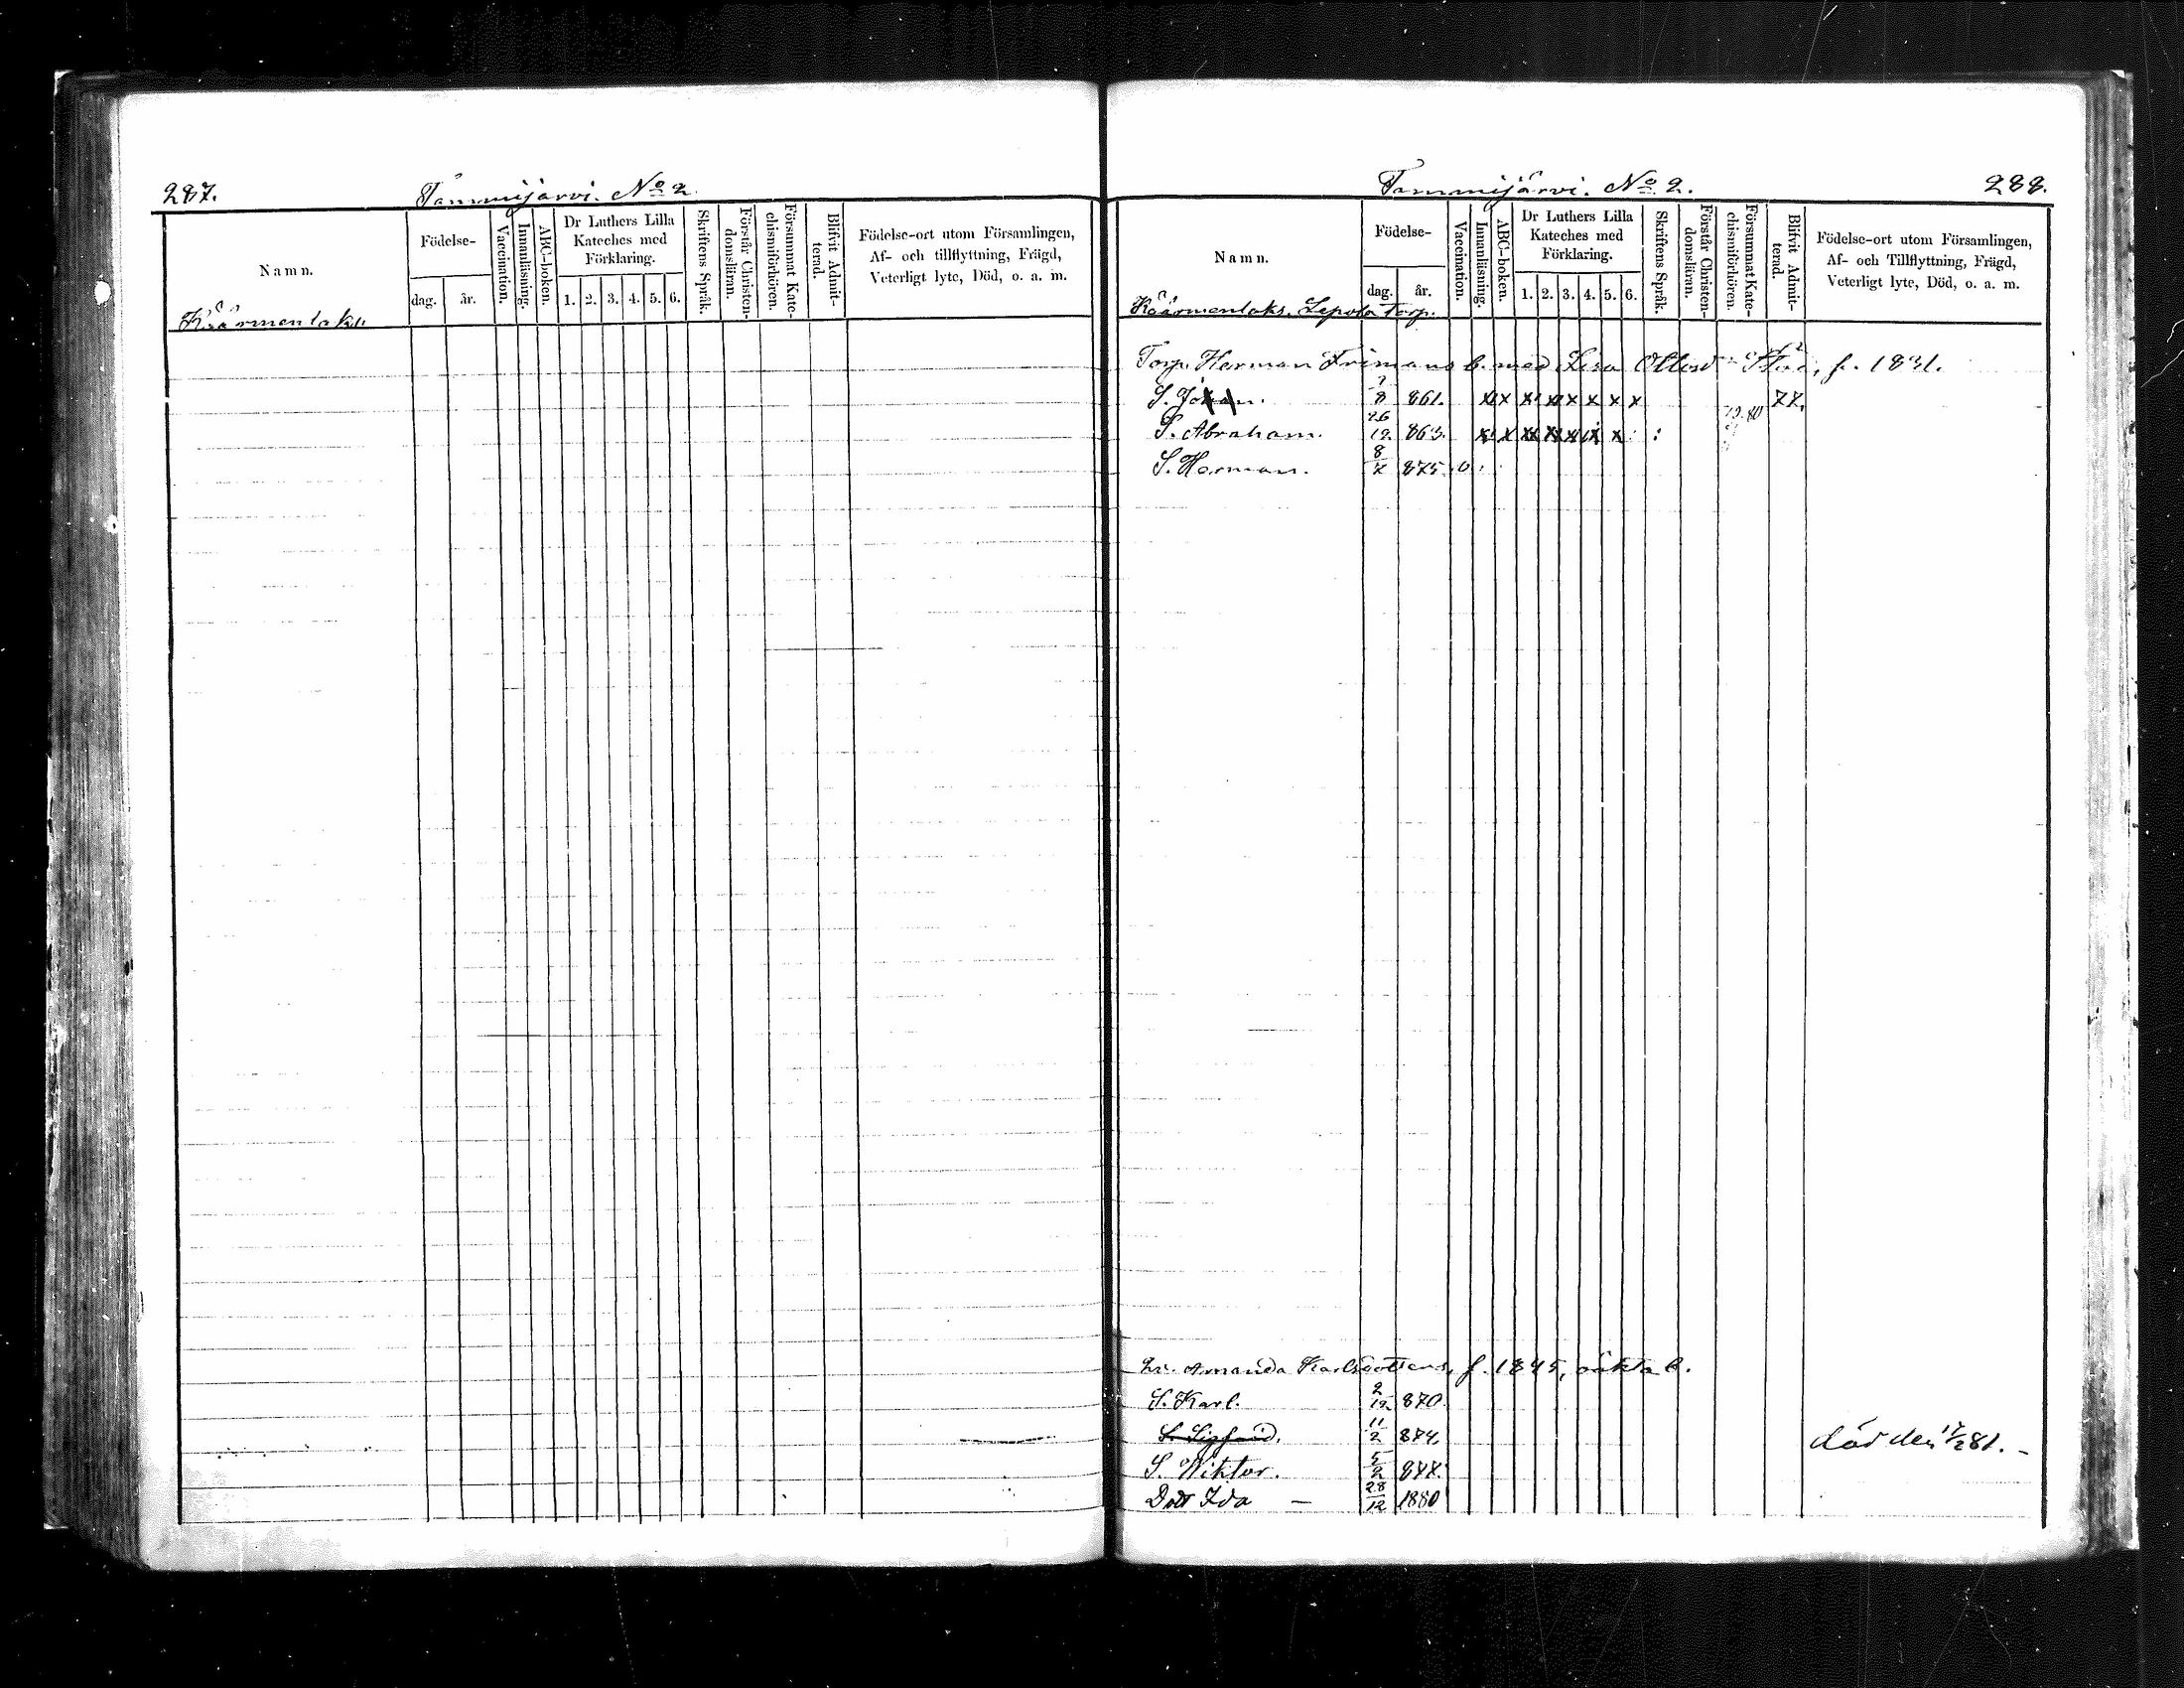 287.
Tammijärvi. No 2.
Namn.
Födelse-
dag.
år.
Vaccination.
Innanläsning.
ABC-boken.
Dr Luthers Lilla
Kateches med
Förklaring.
1. 2. 3. 4. 5. 6.
Skriftens Språk.
Förstår Christen-
domsläran.
Försummat Kate-
chismiförhören.
Blifvit Admit-
terad.
Födelse-ort utom Församlingen,
Af- och tillflyttning, Frägd,
Veterligt lyte, Död, o. a. m.
Käärmenlaks.
Tammijärvi. No 2.
288.
Namn.
Födelse-
dag.
år.
Vaccination.
Innanläsning.
ABC-boken.
Dr Luthers Lilla
Kateches med
Förklaring.
1. 2. 3. 4. 5. 6.
Skriftens Språk.
Förstår Christen-
domsläran.
Försummat Kate-
chismiförhören.
Blifvit Admit-
terad.
Födelse-ort utom Församlingen,
Af- och Tillflyttning, Frägd,
Veterligt lyte, Död, o. a. m.
Käärmenlaks. Lepola Torp.
Torp. Herman Frimans b. med Lisa f. 1831.
S. Johan. 8 861. x x x x x x x x 77.
S. Abraham. 26/12 863. x x x x x x x 80
S. Herman. 8/7 875. 0
Amanda Karlsdotters, f. 1845, oäkta b.
S. Karl. 2/12 870.
S. Sigfrid. 11/2 874. död den 81. -
S. Wiktor. 5/2 877.
Dott Ida — 28/12 1880